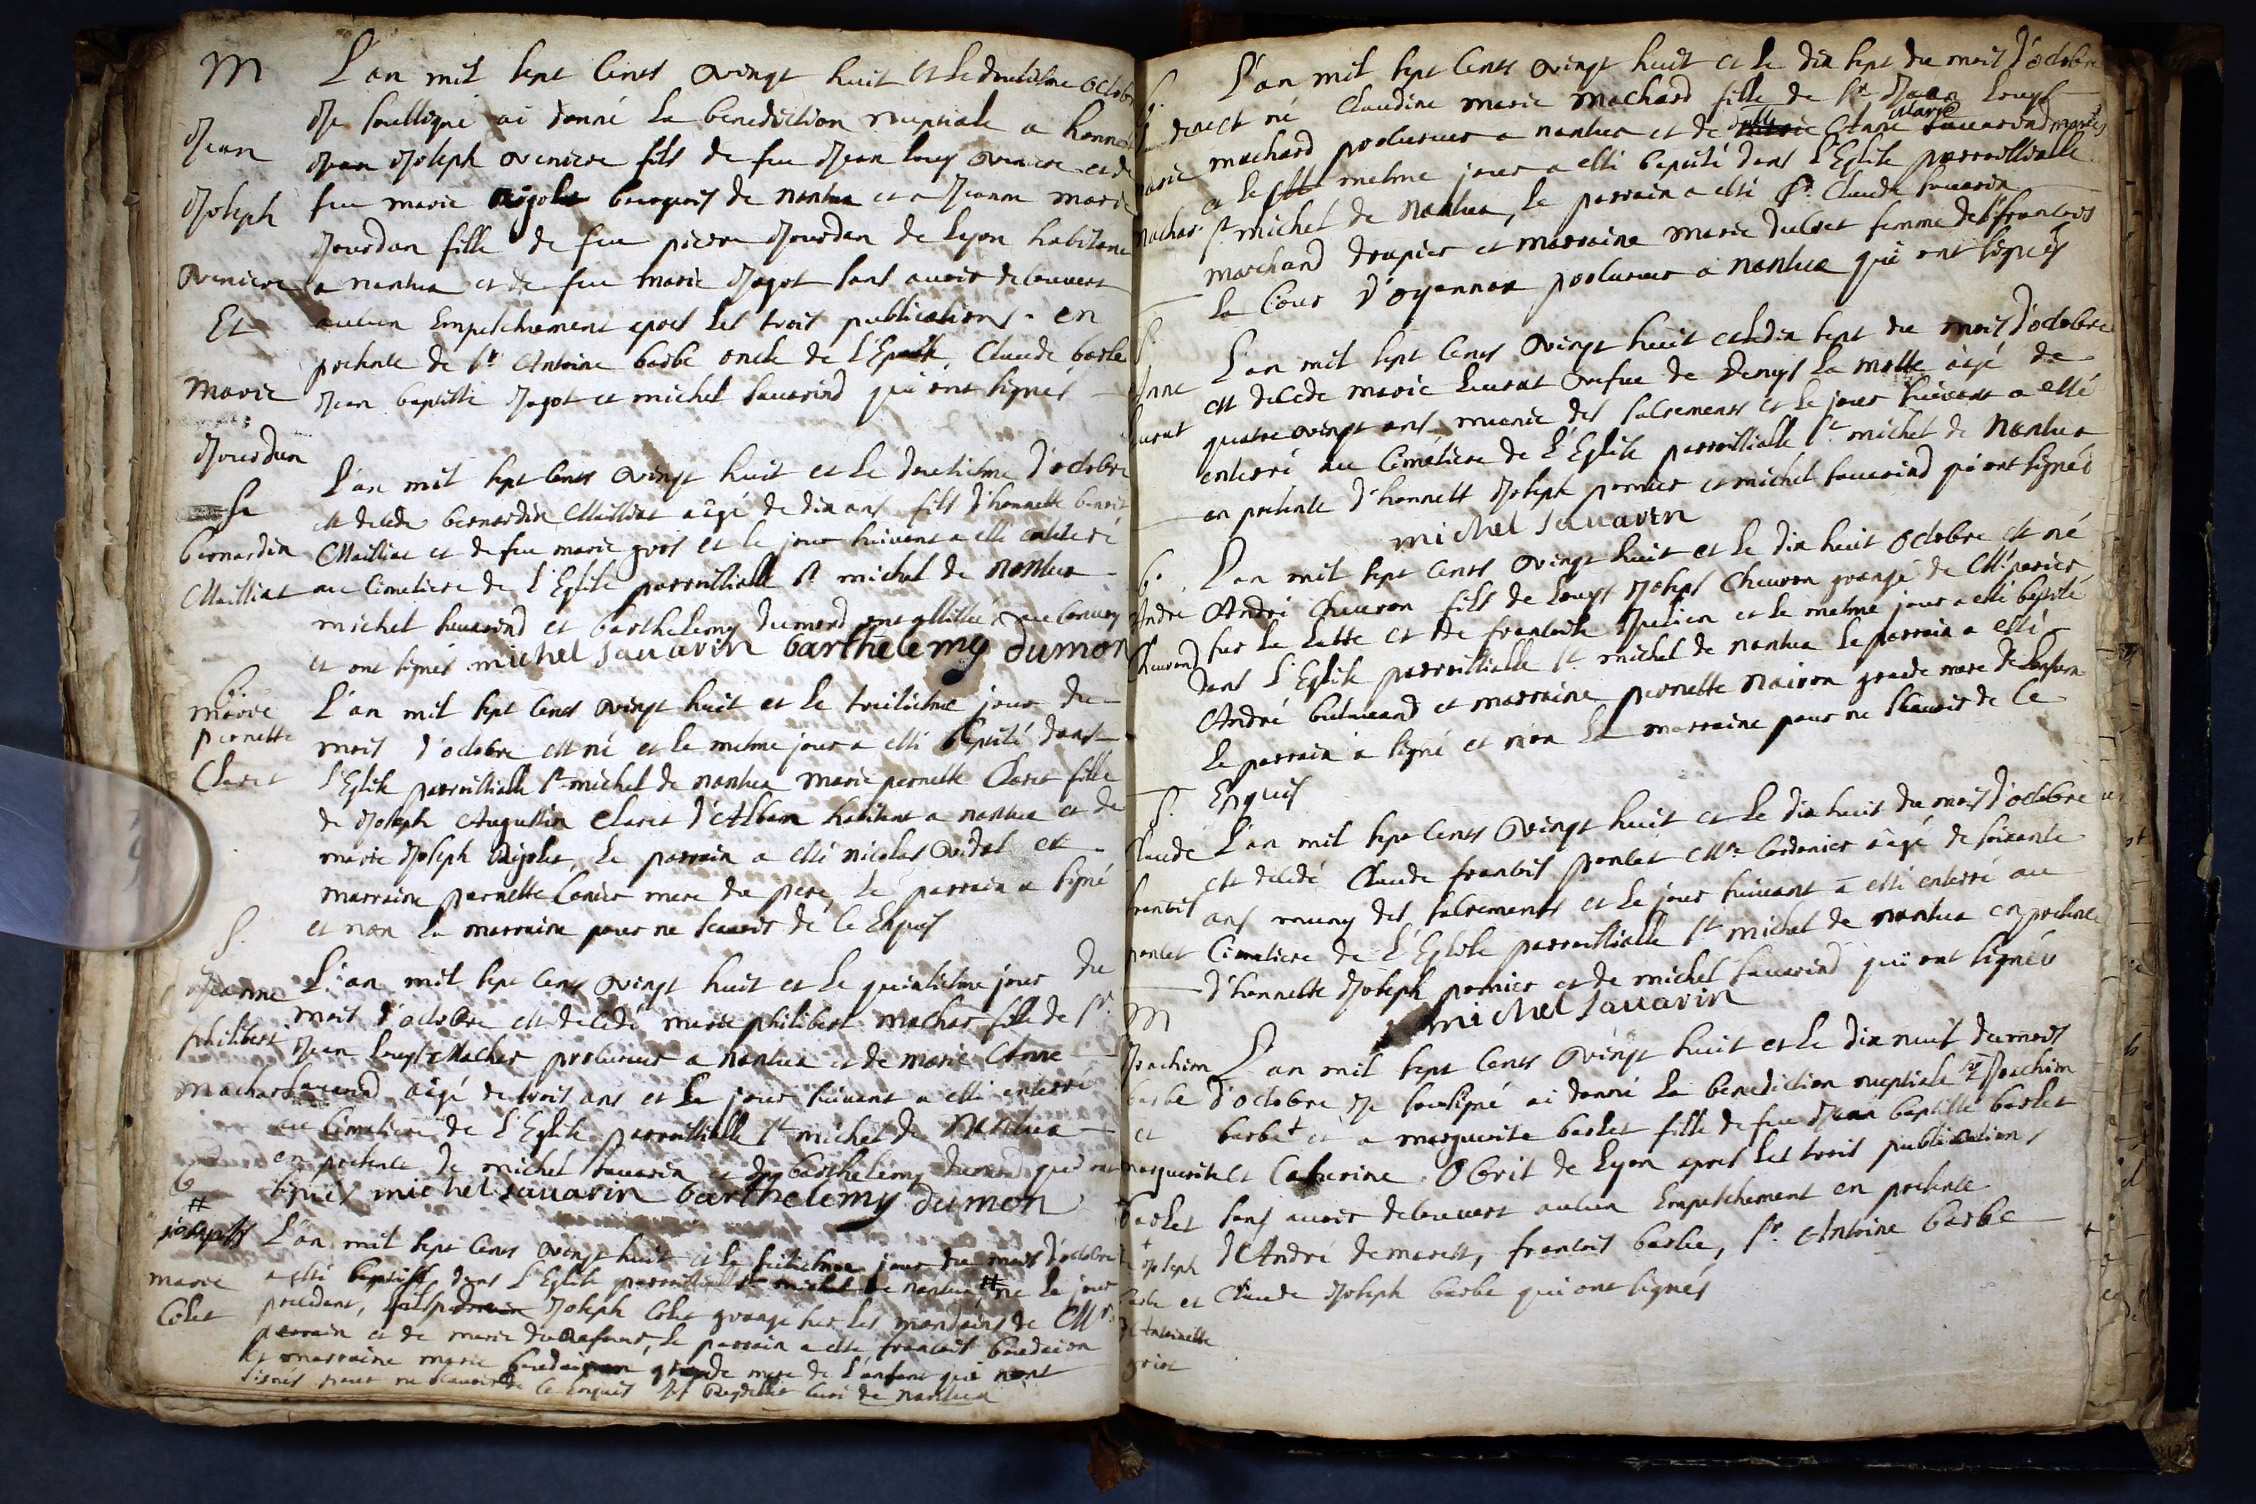 M
Jean
Joseph
Oviniere
Et
Marie
Jourdan
L'an mil sept Cents vingt huit et le douzieme octobr
Je soussigné ai donné la benediction nuptiale a honne
Jean Joseph oviniere fils de feu Jean louys oviniere et de
feu marie bourgeois de nantua et a Jeanne marie
Jourdan fille de feu pierre Jourdan de Lyon habitant
a nantua et de feu marie Jagot sans avoir decouvert
aucun Empeschement apres les trois publications en
presence de Sr Antoine barbe oncle de l'Epouse Claude barbe
Jean baptiste Jagot et michel sauarind qui ont signés
S
bernardin
Mailliat
L'an mil sept Cents vingt huit et le douzieme d'octobre
est decede bernardin Mailliat aagé de dix ans fils d'honneste benoit
Mailliat et de feu marie gros et le jour suivant a esté enterré
au Cimetiere de l'Eglise parroissialle St michel de nantua
michel sauarind et barthelemy dumond ont assisté au convoy
et ont signés michel sauarin barthelemy dumon
b
marie
pernette
Claret
L'an mil sept Cents vingt huit et le treisieme jour du
mois d'octobre est né et le mesme jour a esté baptisé dans
l'Eglise parroissialle St michel de nantua marie pernette Claret fille
de Joseph Augustin Claret d'Alban habitant a nantua et de
marie Joseph le parrain a esté nicolas vidal et
marraine pernette mere du pere, Le parrain a signé
et non La marraine pour ne scavoir de ce Enquis
S.
Jeanne
philibert
machar
L'an mil sept Cents vingt huit et le quinsieme jour du
mois d'octobre est decedé marie philibert machar fille de Sr
Jean louys Machar procureur a nantua et de marie Anne
sauarind aagé de trois ans et le jour suivant a esté enterré
au Cimetiere de l'Eglise parroissialle St michel de nantua
en presence de michel sauarin et de barthelemy dumond qui ont
signés michel sauarin barthelemy dumon
b
#
joseph
marie
Colet
L'an mil sept Cents vingt huit et le seisieme jour du mois d'octobre
a esté baptisé dans l'Eglise parroissialle St michel de nantua # né le jour
precedent, fils Joseph Colet grangé sur les de Mr
perrain et de marie du Le parrain a esté francois
Et marraine marie grande mere de l'enfant qui nont
signés pour ne scavoir de ce Enquis curé de nantua
b.
marie
machar
L'an mil sept Cents vingt huit et le dix sept du mois d'octobre
est né Claudine marie machard fille de Sr Jean Louys
machard procureur a nantua et de dlle marie Anne sauarind mariés
et le mesme jour a esté baptisé dans l'Eglise parroissialle
St michel de nantua, le parrain a esté Sr Claude sauarin
marchand drapier et marraine marie ducret femme de Sr francois
La Cour d'oyonnax procureur a nantua qui ont signés
S.
Anne
Leurat
L'an mil sept Cents vingt huit et le dix sept du mois d'octobre
est decede marie Leurat veufue de Denys La motte aagé de
quatre vingt ans munie des sacrements et le jour suivant a esté
enterré au Cimetiere de l'Eglise parroissialle St michel de nantua
en presence d'honneste Joseph pernier et michel sauarind qui ont signés
michel sauarin
b.
André
Cheuron
L'an mil sept Cents vingt huit et le dix huit octobre est né
André Cheuron fils de Louys Joseph Cheuron grangé de Mr
sur le Latte et de francoise Julien et le mesme jour a esté baptisé
dans l'Eglise parroissialle St michel de nantua Le parrain a esté
André et marraine pernette nairon grande mere de L'enfan
Le parrain a signé et non La marraine pour ne scavoir de ce
Enquis
S.
Claude
francois
poncet
L'an mil sept Cents vingt huit et le dix huit du mois d'octobre
est decedé Claude francois poncet Mre Cordonier aagé de soixante
ans muny des sacrements et le jour suivant a esté enterré au
Cimetiere de l'Eglise parroissialle St michel de nantua en presence
d'honneste Joseph pernier et de michel sauarind qui ont signés
michel sauarin
M
Joachim
barbe
et
marguerite
barlet
+
Joseph
barbe et
d'Antoinette
L'an mil sept Cents vingt huit et le dix neuf du mois
d'octobre Je soussigné ai donné la benediction nuptiale Joachim
barbe + et a marguerite barlet fille de feu Jean baptiste barlet
et Catherine Obrit de Lyon apres les trois publications
sans avoir decouvert aucun Empeschement en presence
d'André demarest, francois barbe, Sr Antoine barbe
et Claude Joseph barbe qui ont signés